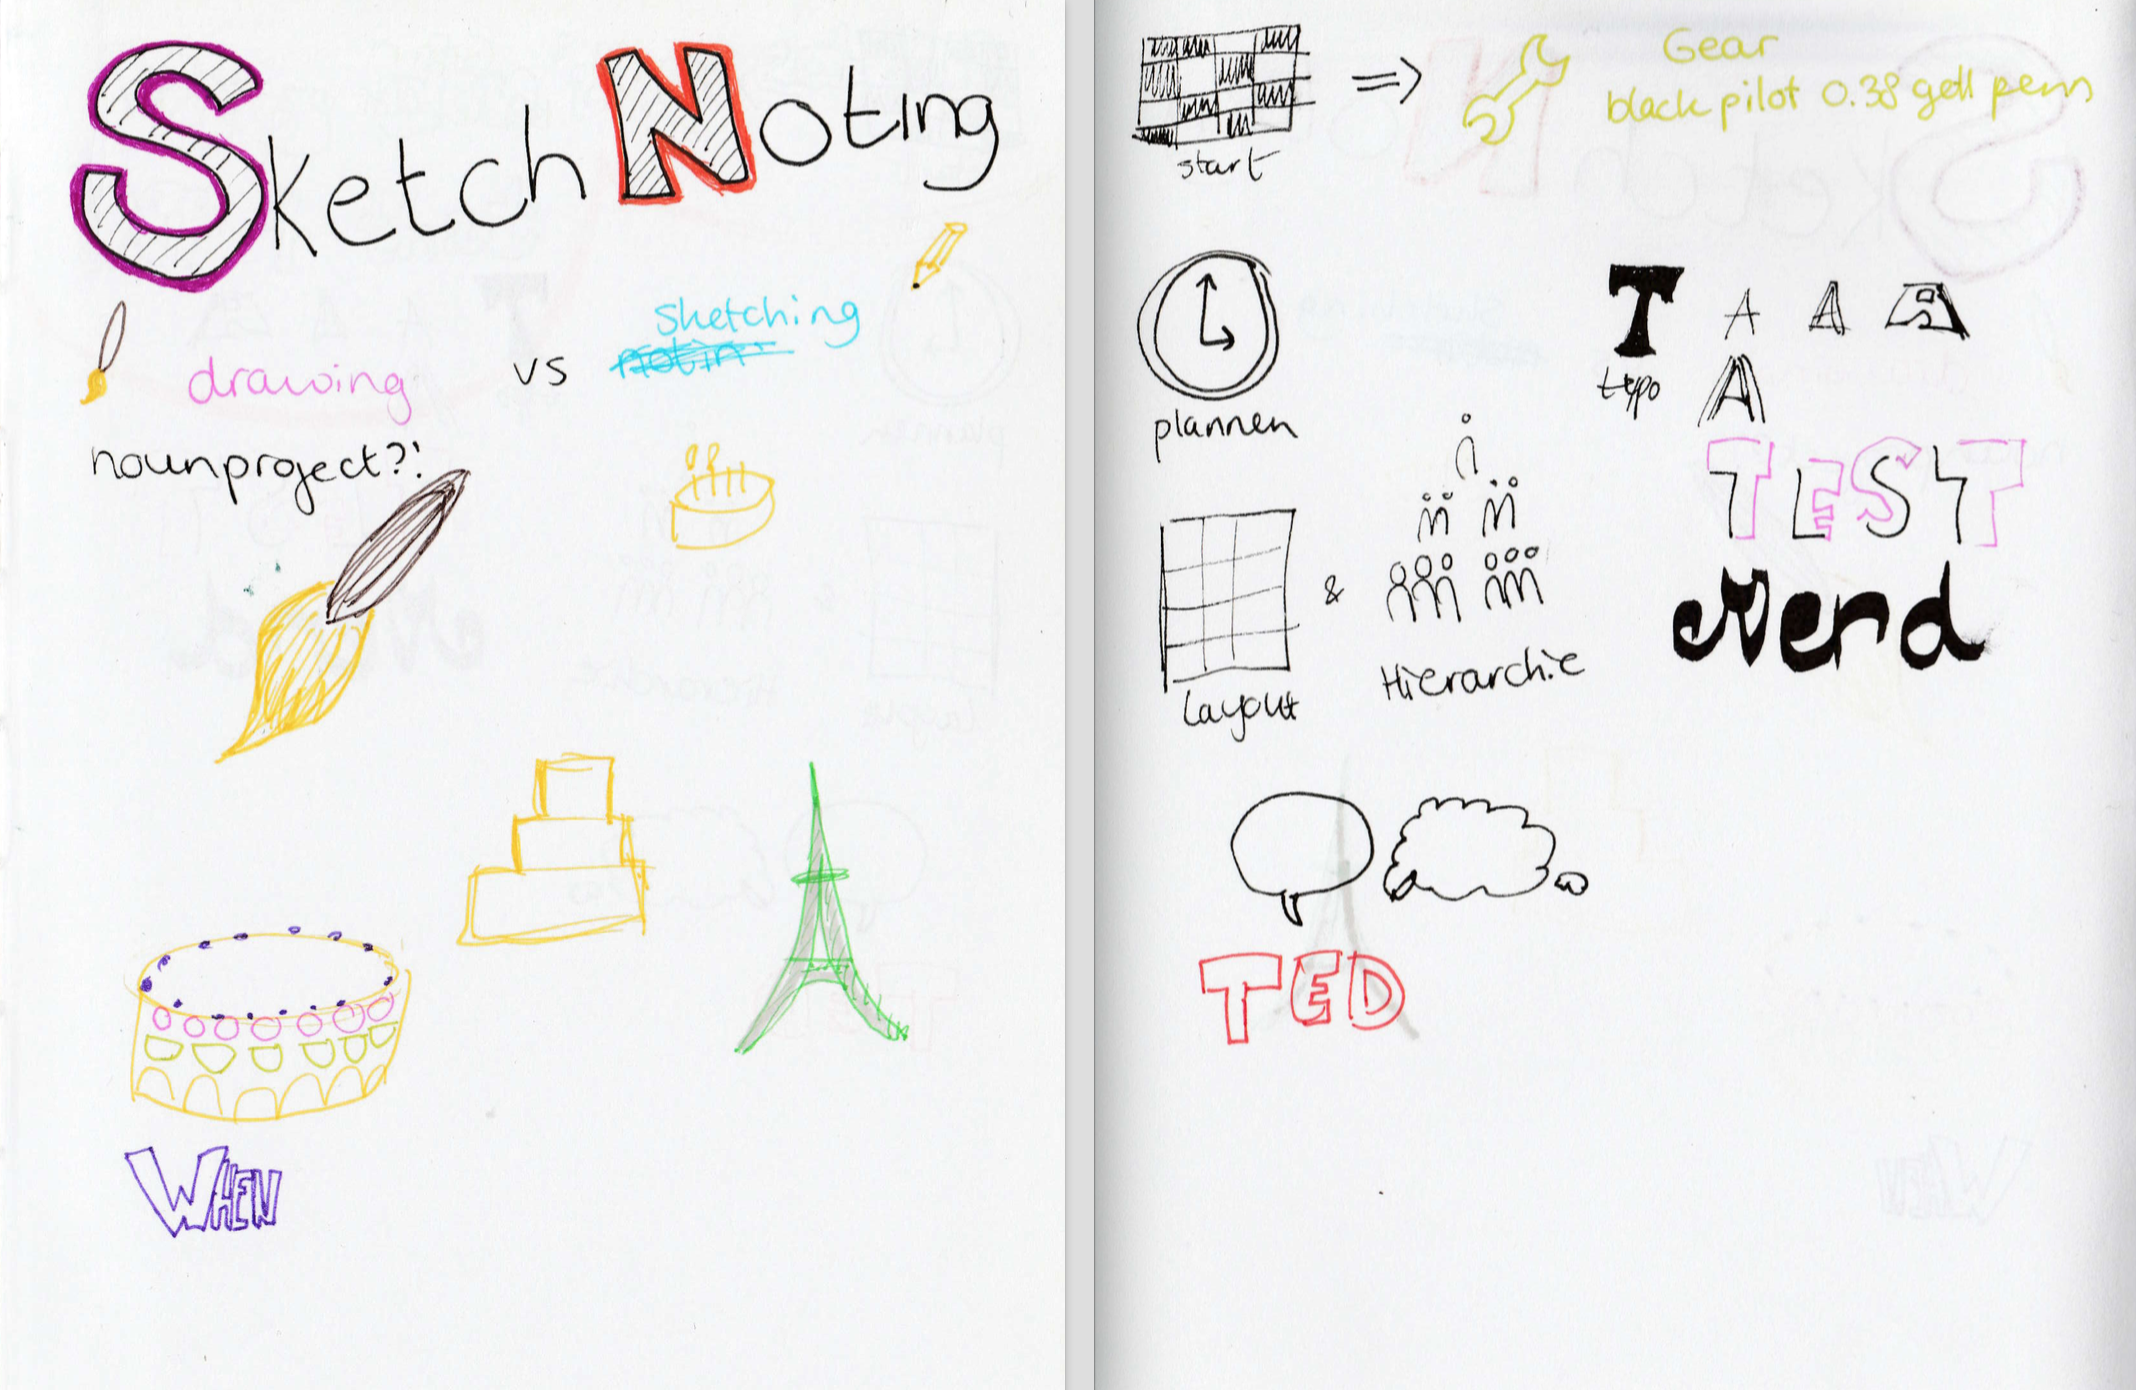 SketchNoting
drawing vs sketching
nounproject?!
WHEN
start
=>
Gear
black pilot 0.38 gell pens
plannen
T A A A
typo
A
TEST
Nerd
layout & Hierarchie
TED